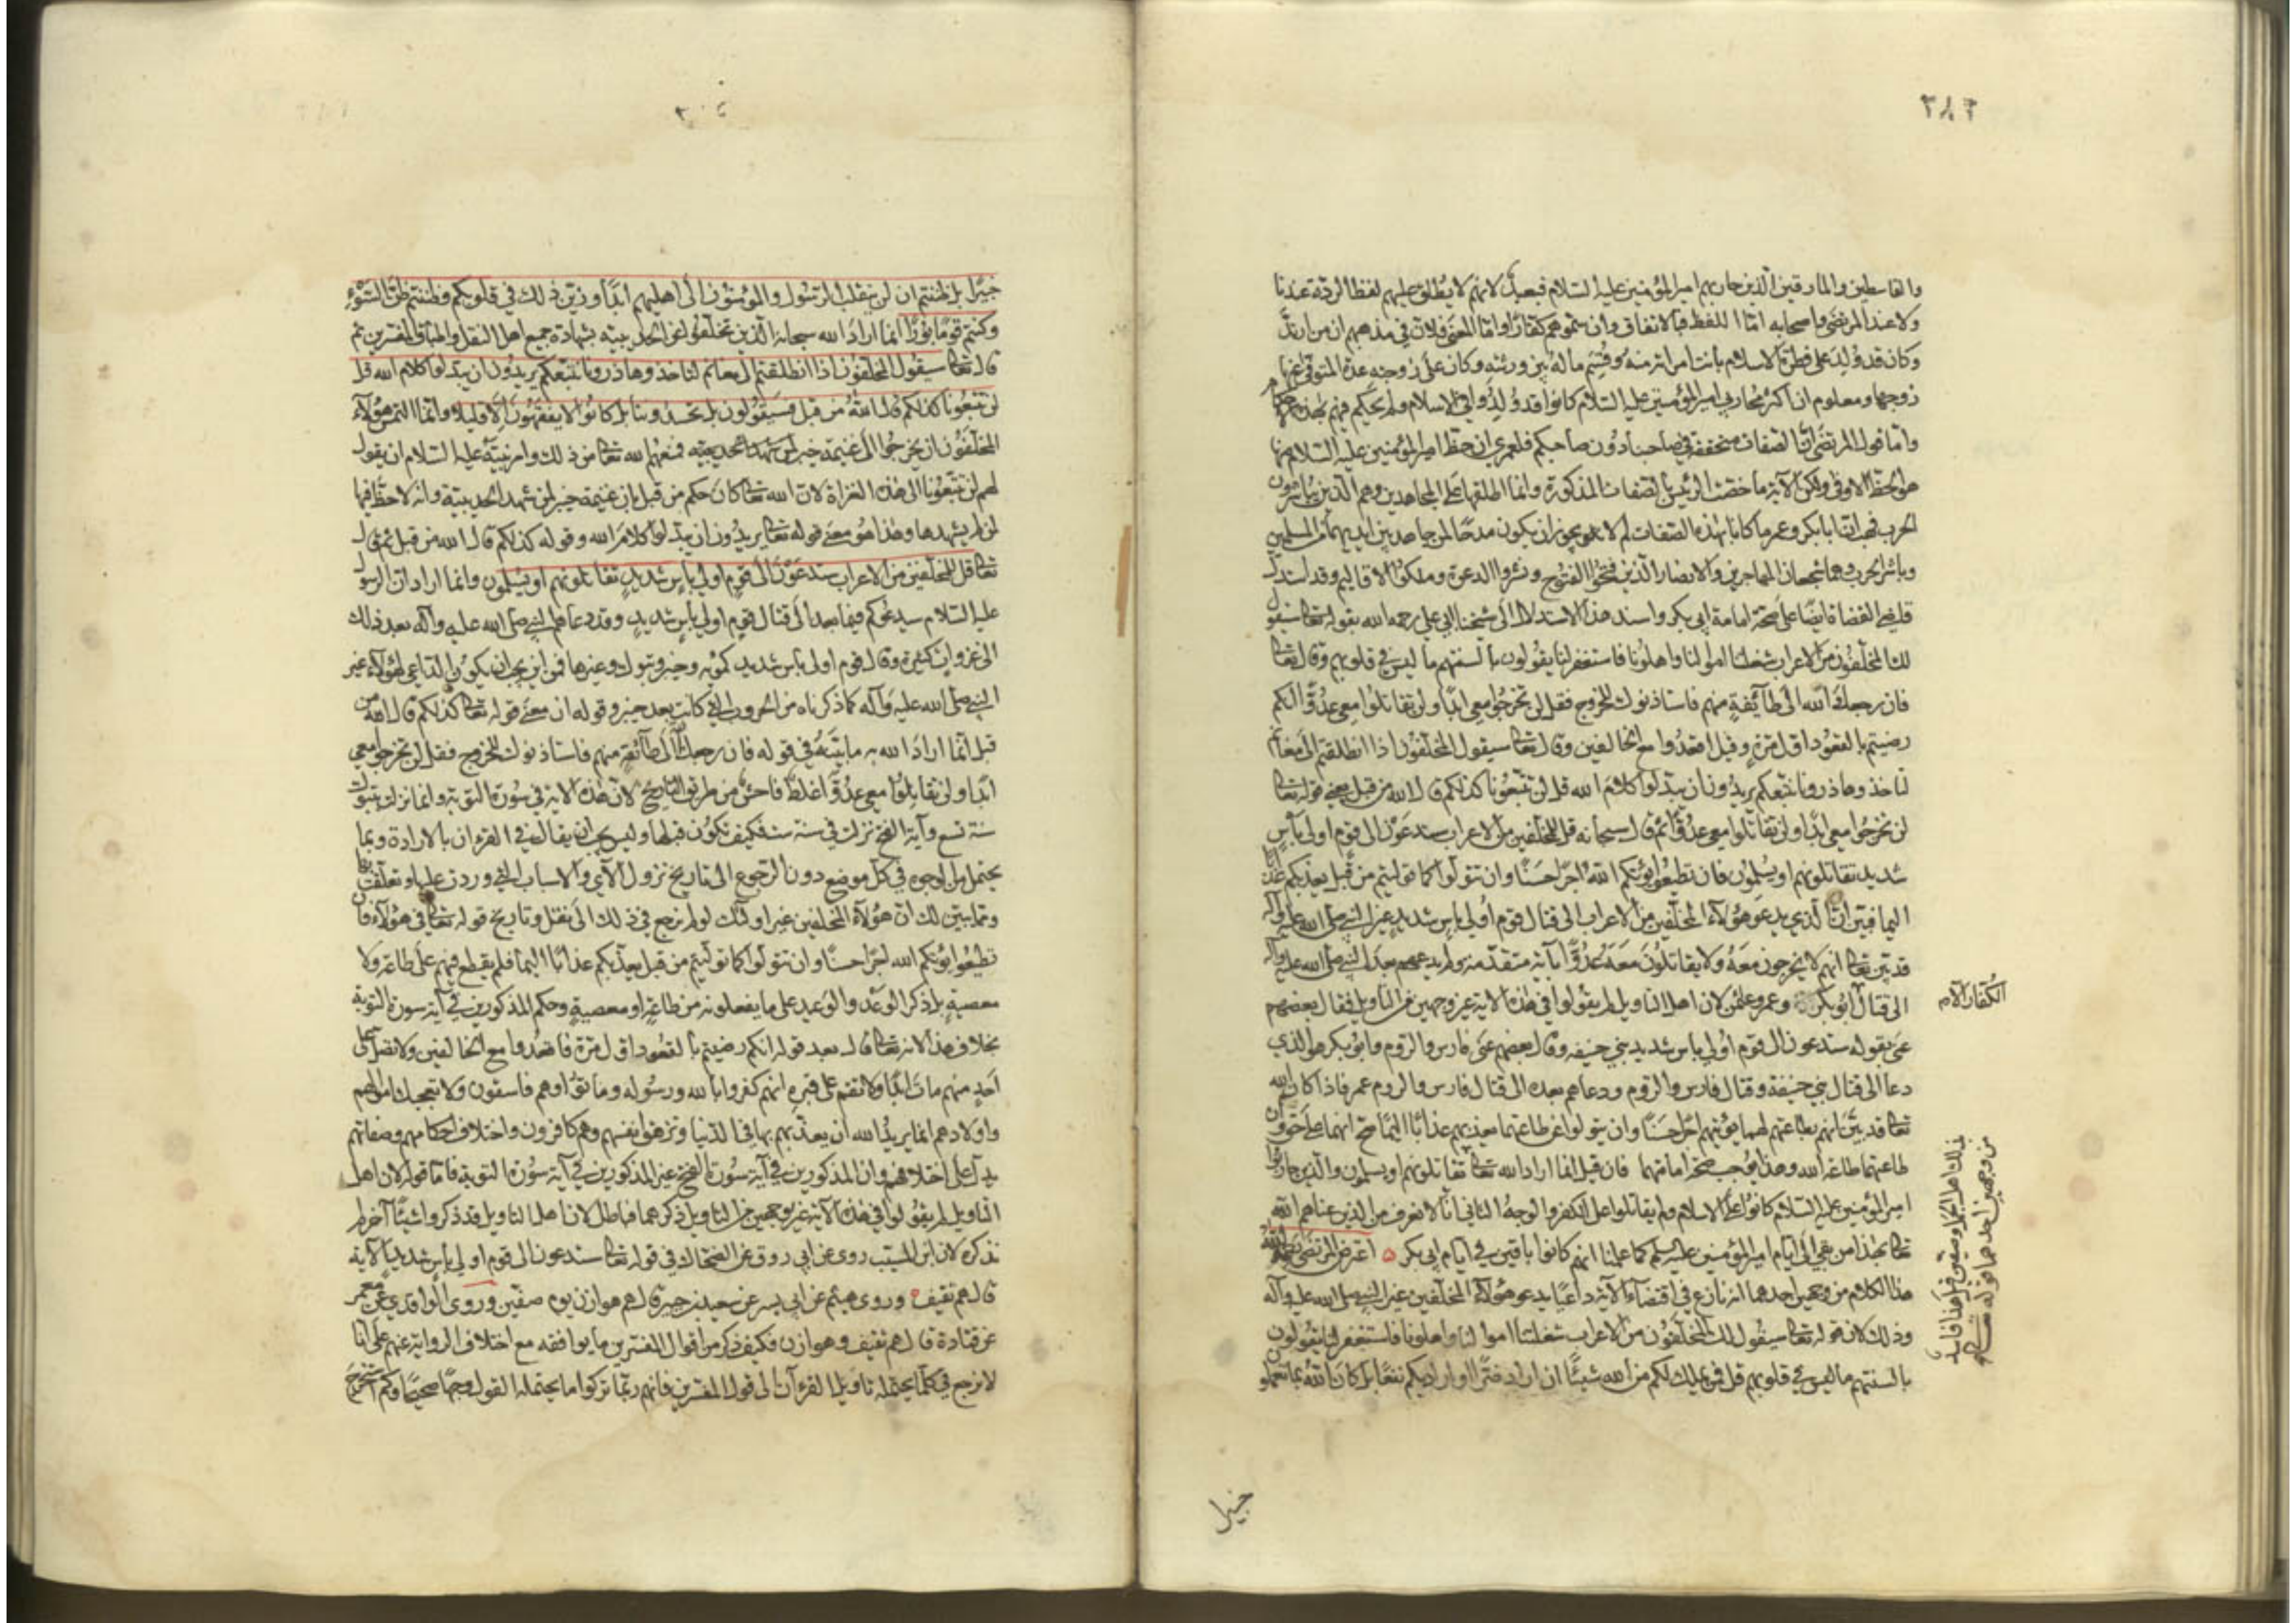 ٢٨٣
والقاسطين والمارقين الذين حاربهم امير المؤمنين عليه السلام فبعيد لانهم لا يطلق عليهم لفظ الردة عندنا
ولا عند المرتضى واصحابه امّا اللفظ فبالاتفاق وان سمّوهم كفارًا وامّا المعنى فلان في مذهبهم ان من ارتدّ
وكان قد وُلِدَ على فطرة الاسلام بانت امراته منه وقُسِّم ماله بين ورثته وكان على زوجته عدة المتوفى عنها
زوجها ومعلوم ان اكثر محاربي امير المؤمنين عليه السلام كانوا قد وُلِدُوا في الاسلام ولم يحكم فيهم بهذه الاحكام
واما قول المرتضى انّ الصفات متحققة في صاحبنا دُون صاحبكم فلعمري ان حظ امير المؤمنين عليه السلام منها
هو الحظ الاوفى ولكن الآية ما خصّت الرئيس بالصفات المذكورة وانما اطلقها على المجاهدين وهم الذين يباشرون
الحرب فهب انّ ابا بكر وعمر ما كانا بهذه الصفات لم لا يجوز ان يكون مدحًا لمن جاهد بين ايديهما من المسلمين
وباشر الحرب وهما شجعان المهاجرين والانصار الذين فتحوا الفتوح ونشروا الدعوة وملكوا الاقاليم وقد استدل
قاضي القضاة ايضًا على صحّة امامة ابي بكر واسند هذا الاستدلال الى شيخنا ابي علي رحمه الله بقوله تعالى سيقول
لك المخلّفون من الاعراب شغلتنا اموالنا واهلونا فاستغفر لنا يقولون بالسنتهم ما ليس في قلوبهم وقال تعالى
فان رجعك الله الى طآئفةٍ منهم فاستاذنوك للخروج فقل لن تخرجُوا معي ابدًا ولن تقاتلوا معي عدُوًّا انكم
رضيتم بالقعُود اوّل مرّةٍ وقيل اقعدُوا مع الخالفين وقال تعالى سيقول المخلّفون اذا انطلقتم الى مغانم
لتاخذوها ذرونا نتّبعكم يريدُون ان يبدّلوا كلامَ الله قل لن تتّبعُونا كذلكم قال الله من قبل يعني قوله تعالى
لن تخرجُوا معي ابدًا ولن تقاتلوا معي عدُوًّا ثم قال سبحانه قل للمخلّفين من الاعراب ستدعَوْن الى قوم اولي بأس
شديد تقاتلونهم او يسلمُون فان تطيعوا يؤتكم اللهُ اجرًا حسَنًا وان تتولّوا كما تولّيتم من قبل يعذبكم عذابا
اليما فبيّن انّ الذي يدعو هؤلاء المخلّفين من الاعراب الى قتال قوم اُولي باس شديد غير النبي صلى الله عليه وآله
قد بيّن تعالى انهم لا يخرجون معَهُ ولا يقاتلُون معَهُ عَدُوًّا بآية متقدّمة ولم يدعهم بعد النبي صلى الله عليه وآله
الى قتال ابُو بكر وعمر وعثمن لان اهل التاويل لم يقولوا في هذه الآية غير وجهين من التاويل فقال بعضهم
عنى بقوله ستدعون الى قوم اُولي باس شديد بني حنيفة وقال بعضهم عنى فارس والروم وابُو بكر هو الذي
دعا الى قتال بني حنيفة وقتال فارس والروم ودعاهم بعده الى قتال فارس والروم عمر فاذا كان الله
تعالى قد بيّن انهم بطاعتهم لهما يؤتيهم اجرًا حسَنًا وان يتولوا عن طاعتهما يعذبهم عذابًا اليمًا صحّ انهما على حق وان
طاعتهما طاعة لله وهذا يُوجب صحّة امامتهما فان قيل انما اراد الله تعالى تقاتلونهم او يسلمون والذين حاربوا
امير المؤمنين عليه السلام كانوا على الاسلام ولم يقاتلوا على الكفر والوجهُ الثاني انّا لا نعرف من الذين عناهم الله
تعالى بهذا من بقي الى ايام امير المؤمنين عليه السلم كما علمنا انهم كانوا باقين في ايام ابي بكر ه اعترض المرتضى رحمه الله
هذا الكلام من وجهين احدهما انه نازع في اقتضاء الآية داعيًا يدعو هؤلاء المخلّفين غير النبي صلى الله عليه وآله
وذلك لان قوله تعالى سيقُول لك المخلّفُون من الاعراب شغلتنا اموالنا واهلونا فاستغفر لنا يقولون
بالسنتهم ما ليس في قلوبهم قل فمن يملك لكم من الله شيئًا ان اراد بكم ضرًّا او اراد بكم نفعًا بل كان اللهُ بما تعملون
الكفار الآم
بذلك اهل الجمل وصفين قيل هذا فاسد
من وجهين احدهما قوله تعالى
خبيرا
خبيرًا بل ظننتم ان لن ينقلب الرسُول والمؤمنون الى اهليهم ابدًا وزيّن ذلك في قلوبكم وظننتم ظنّ السّوء
وكنتم قومًا بُورًا انما ارادَ الله سبحانه الذين تخلّفُوا عن الحديبية بشهادة جميع اهل النقل واطباق المفسرين ثم
قال تعالى سيقول المخلّفون اذا انطلقتم الى مغانم لتاخذوها ذرونا نتبعكم يريدُون ان يبدلوا كلام الله قل
لن تتبعُونا كذلكم قال اللهُ من قبل فسَيقُولون بل تحسدوننا بل كانُوا لا يفقهُون الّا قليلا وانما التمس هؤلاء
المخلّفون ان يخرجُوا الى غنيمة خيبر لمن شهد الحديبية فمنعهُم الله تعالى من ذلك وامر نبيّه عليه السلام ان يقول
لهم لن تتّبعُونا الى هذه الغزاة لانّ الله تعالى كان حكم من قبل بان غنيمة خيبر لمن شهد الحديبية وانه لا حظّ فيها
لمن لم يشهدها وهذا هو معنى قوله تعالى يريدُون ان يبدّلوا كلامَ الله وقوله كذلكم قال الله من قبل ثم قال
تعالى قل للمخلّفين من الاعراب ستدعَوْن الى قوم اولي باسٍ شديدٍ تقاتلونهم او يسلمون وانما اراد ان الرسول
عليه السلام سيدعوكم فيما بعد الى قتال قوم اولي باسٍ شديدٍ وقد دعاهم النبي صلى الله عليه وآله بعد ذلك
الى غزواتٍ كثيرة وقتال قوم اولى باس شديد كمُؤته وحنين وتبوك وغيرها فمن اين يجب ان يكون الداعي لهؤلاء غير
النبي صلى الله عليه وآله كما ذكرناه من الحروب التي كانت بعد خيبر وقوله ان معنى قوله تعالى كذلكم قال الله من
قبل انما ارادَ الله به ما بيّنهُ في قوله فان رجعك الله الى طآئفةٍ منهم فاستاذنوك للخروج فقل لن تخرجُوا معي
ابدًا ولن تقاتلوا معي عدُوًّا غلطٌ فاحشٌ من طريق التاريخ لانّ هذه الآية في سُورة التوبة وانما نزلت بتبوك
سنة تسع وآية الفتح نزلت في سنة ست فكيف تكون قبلها وليس يجب ان يقال في القرءان بالارادة وبما
يحتمل من الوجوه في كل موضع دون الرجوع الى تاريخ نزول الآي والاسباب التي وردت عليها وتعلّقت بها
وممّا يبيّن لك انّ هؤلاء المخلفين غير اولئك لو لم نرجع في ذلك الى نقل وتاريخ قوله تعالى في هؤلاء فان
تطيعُوا يؤتكم الله اجرًا حسنًا وان تتولّوا كما تولّيتم من قبل يعذّبكم عذابًا اليما فلم يقطع فيهم على طاعةٍ ولا
معصيةٍ بل ذكر الوعد والوَعيد على ما يفعلونه من طاعةٍ او معصيةٍ وحكم المذكورين في آية سورة التوبة
بخلاف هذا لانه تعالى قال بعد قوله انكم رضيتم بالقعُود اول مرّة فاقعدُوا مع الخالفين ولا تصلّ على
اَحدٍ منهم مات ابدًا ولا تقم على قبره انهم كفروا بالله ورسُوله وماتوُا وهم فاسقون ولا تعجبك اموالهم
واولادهم انما يريدُ الله ان يعذّبهم بها في الدنيا وتزهق انفسهم وهم كافرون واختلاف احكامهم وصفاتهم
يدلّ على اختلافهم وان المذكورين في آية سُورة الفتح غير المذكورين في آية سُورة التوبة فامّا قوله لان اهل
التاويل لم يقُولوا في هذه الآية غير وجهين من التاويل ذكرهما فباطل لان اهل التاويل قد ذكروا شيئًا آخر لم
نذكره لان ابن المسيّب روى عن ابي روق عن الضحّاك في قوله تعالى ستدعون الى قوم اولي بأسٍ شديدٍ الآية
قال هم ثقيف ه وروى هيثم عن ابي بسر عن سعيد بن جبير قال هم هوازن يوم صفّين وروى الواقدي عن معمر
عن قتادة قال هم ثقيف وهوازن فكيف ذكر من اقوال المفسّرين ما يوافقه مع اختلاف الرواية عنهم على انا
لا نرجع في كلّ ما يحتمله تاويل القرءآن الى قول المفسّرين فانهم ربّما تركوا ما يحتمله القول وجهًا صحيحًا وكم استخرج